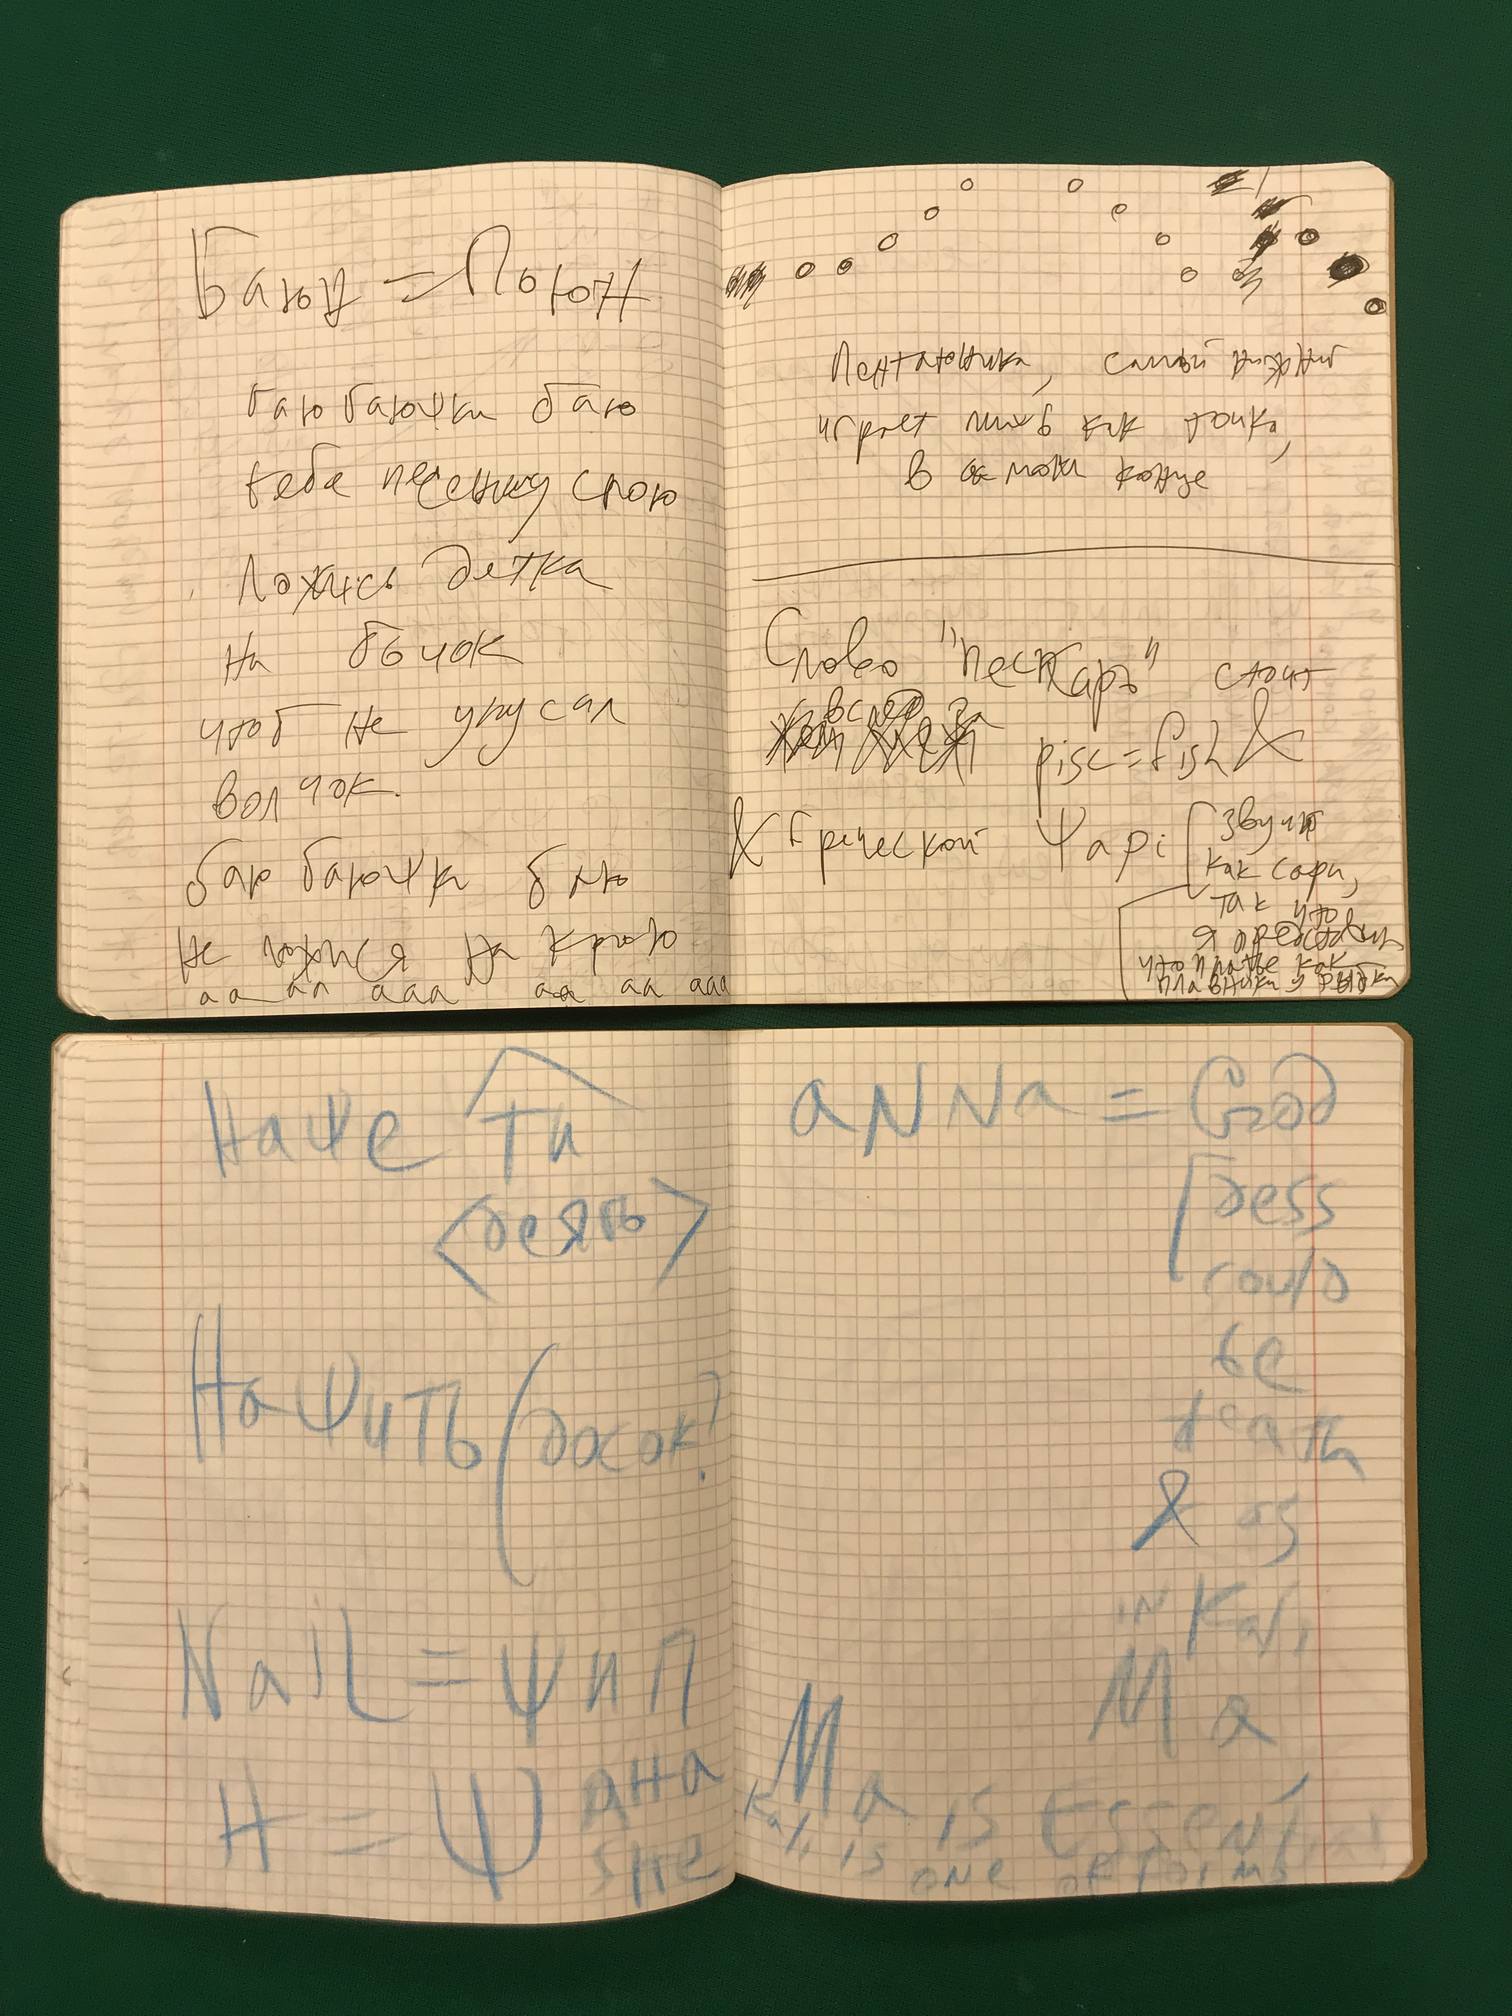 баю баюшки баю
тебе песенку спою
Ложись детка
на бочок
чтоб не укусал
волчок.
баю баюψки баю
Не ложися на краю
аа аа ааа аа аа ааа
Пентатоника, самый нижний
играет лишь как точка,
в самом конце
Слово "пескарь" стоит
вслед за
pisc=fish &
& Греческой Ψapi
звучит
как сари,
так что
я представил
что платье как
плавники у рыбки
НаΨе Ти
<деять>
НаΨить (досок?
NaiL = Ψип
Н = Ψ ана
she
aNNa = God
dess
could
be
death
& as
in Kali
Ma
Ma is Essential
Kali is one of forms